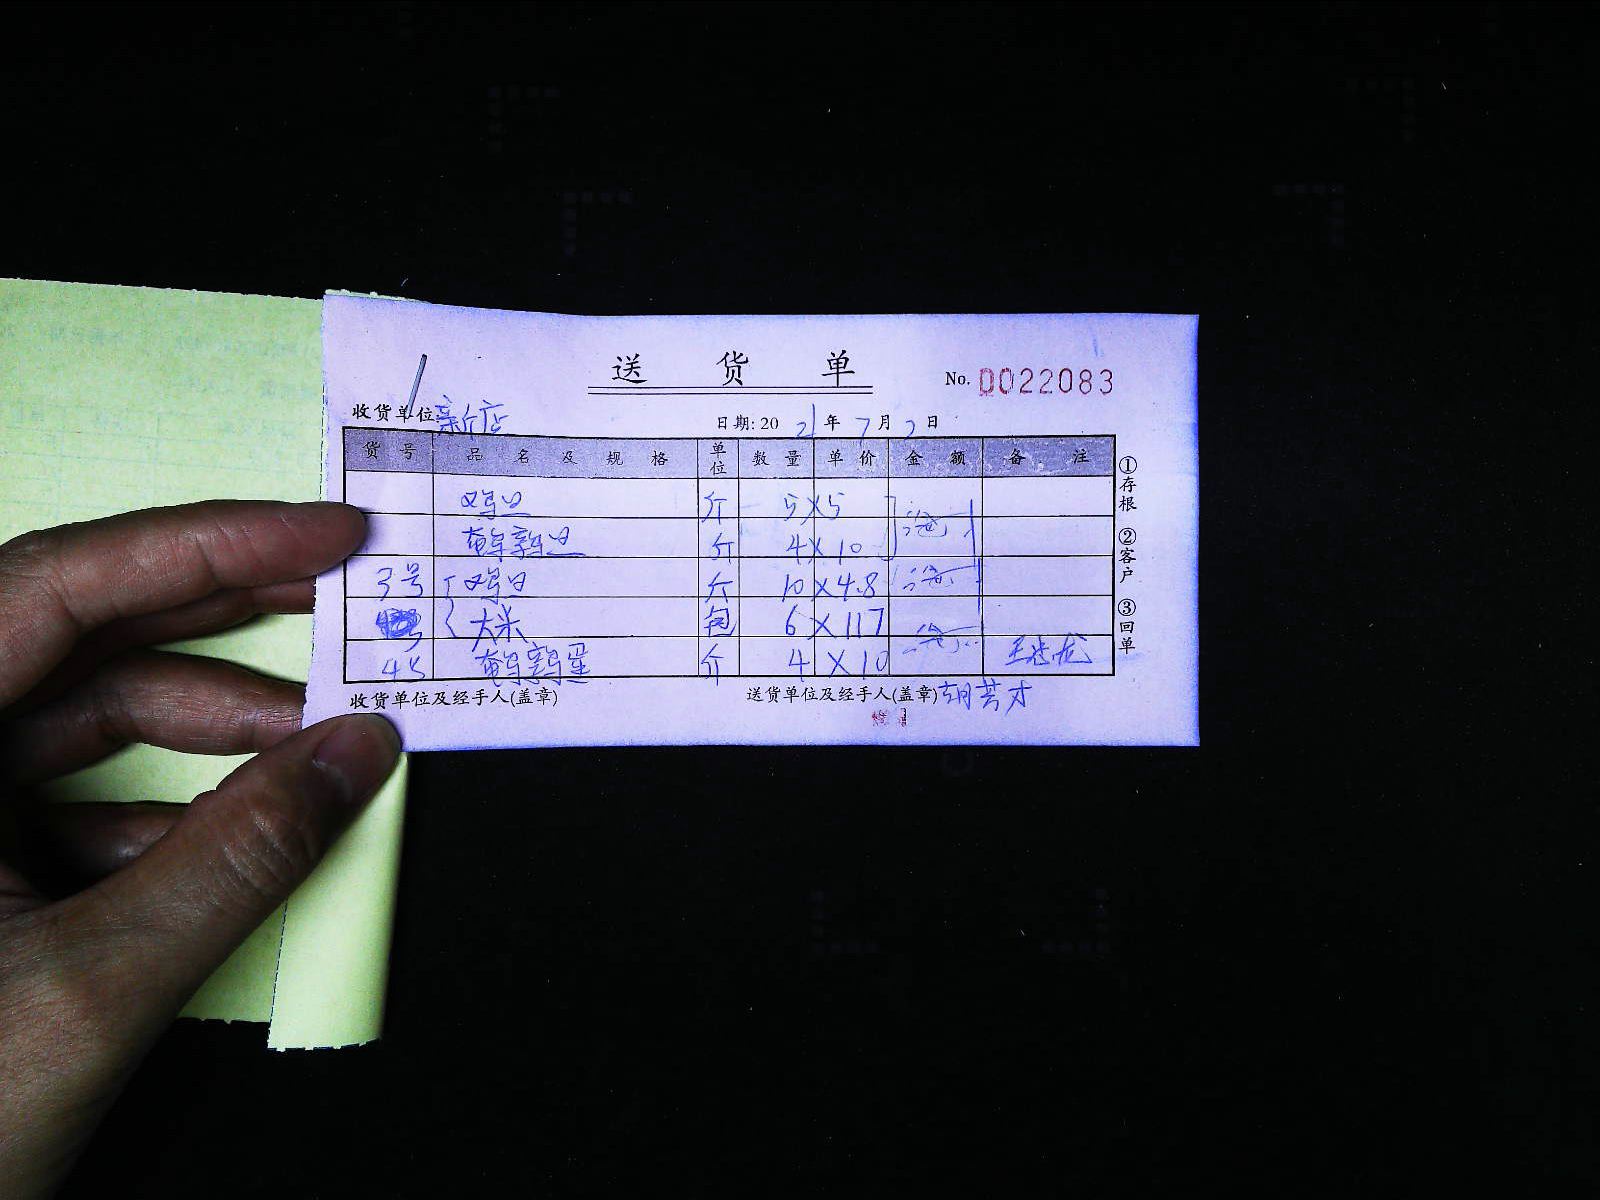 送 货 单
No. 0022083
收货单位: 新店
日期: 20 21 年 7 月 2 日
货号 品名及规格 单位 数量 单价 金额 备注
鸡旦 斤 5 X 5
鹌鹑旦 斤 4 X 10
3号 鸡旦 斤 10 X 4.8
大米 包 6 X 117
4号 鹌鹑蛋 斤 4 X 10
收货单位及经手人(盖章)
送货单位及经手人(盖章) 胡芸才
①存根 ②客户 ③回单